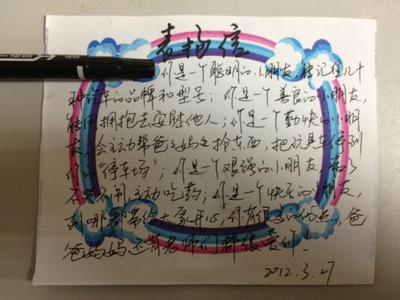 表扬信
你是一个聪明的小朋友,能记住几十
种汽车的品牌和型号;你是一个善良的小朋友,
能用拥抱去安慰他人;你是一个勤快的小朋
友,会主动帮爸爸妈妈拎东西,把玩具车停到
“停车场”;你是一个坚强的小朋友,
不哭不闹主动吃药;你是一个快乐的小朋友,
到哪都带给大家开心,你有很多的优点,爸
爸妈妈还有老师们都很爱你
2012.3.27